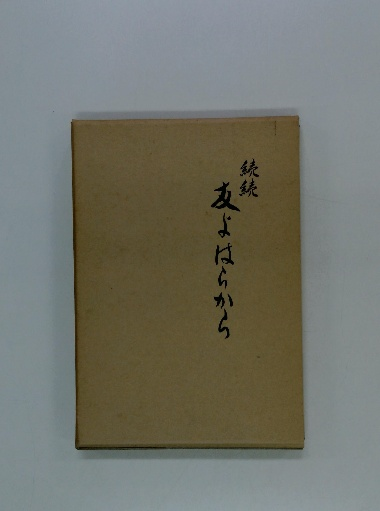 続続
友よはらから